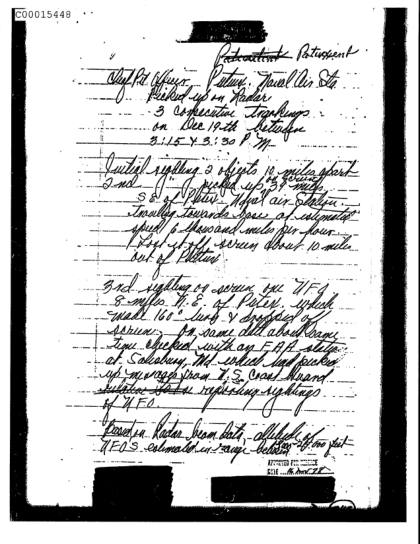 C00015448
Patuxent
Patuxent Naval Air Sta.
Picked up on Radar
3 consecutive trackings
on Dec 19th between
3:15 & 3:30 P.M.
Initial sighting 2 objects 10 miles apart
2nd picked up 39 miles
S.E. of Naval air station
traveling towards base at estimated
speed 6 thousand miles per hour.
Lost it off screen about 10 miles
out of
3rd sighting on screen one UFO
8 miles N.E. of which
made 160° turn & dropped off
screen. On same date about same
time checked with an FAA station
at Salisbury Md. which had picked
up messages from U.S. Coast Guard
reporting sightings
of UFO.
Based on Radar beam data, altitude of
UFOS estimated in range between
APPROVED FOR RELEASE
DATE